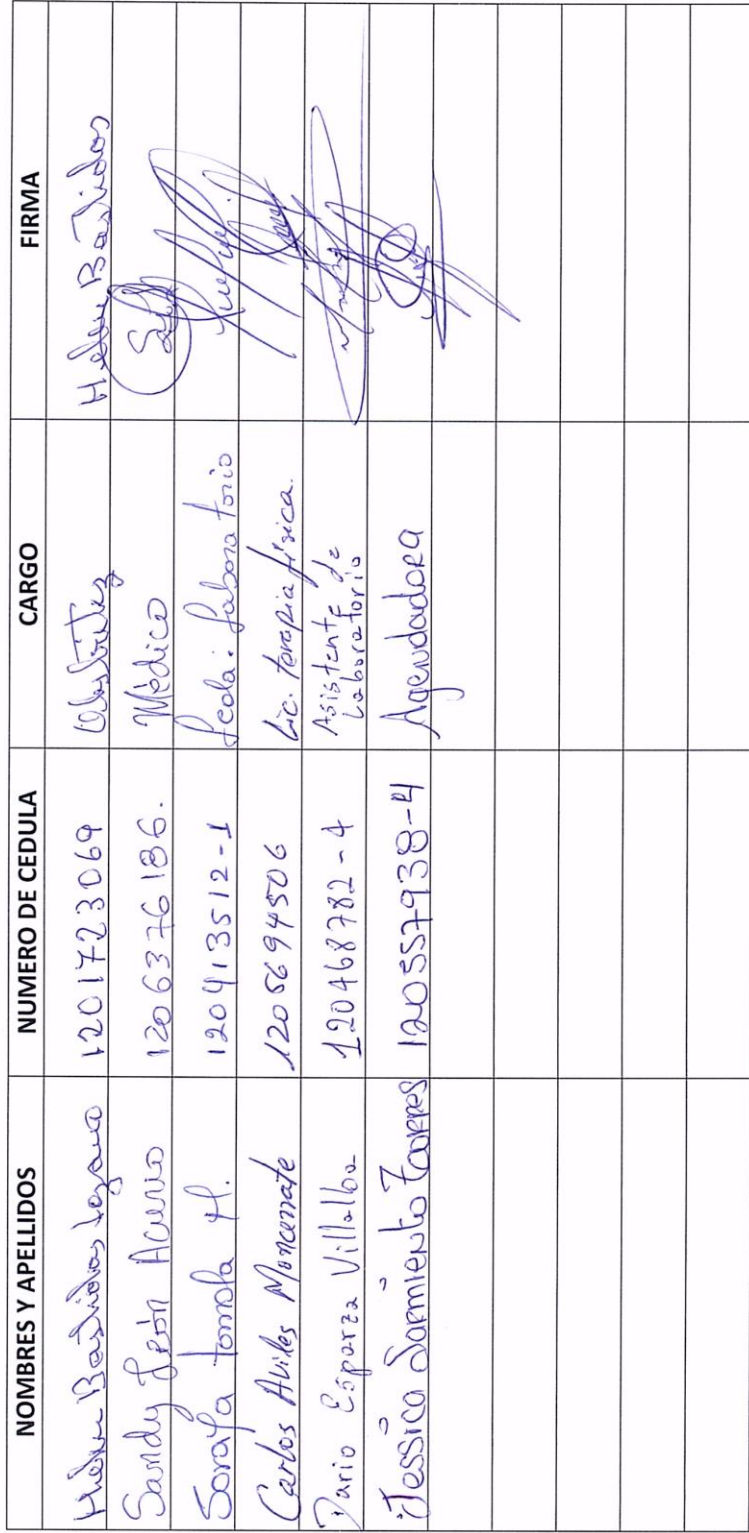 NOMBRES Y APELLIDOS NUMERO DE CEDULA CARGO FIRMA
Helen Bastidas Lozano 1201723069 Obstetriz Helen Bastidas
Sandy León Acurio 1206376186. Médico
Soraya Tomala H.120413512-1 Lcda. Laboratorio
Carlos Aviles Moncerrate 1205694506 Lic. terapia física.
Dario Esparza Villalba 120468782-4 Asistente de
Laboratorio
Jessica Sarmiento Torres 120557938-4 Agendadora